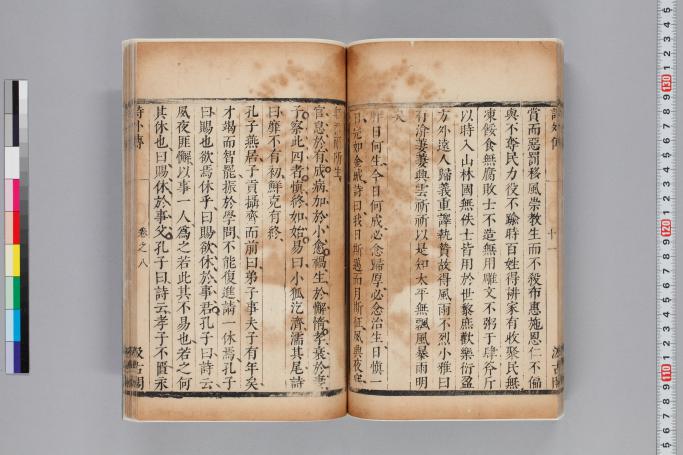 賞而惡罰移風崇教生而不殺布惠施恩仁不偏
與不奪民力役不踰時百姓得耕家有收聚民無
凍餒食無腐敗士不造無用雕文不粥于肆斧斤
以時入山林國無佚士皆用於世黎庶歡樂衍盈
方外遠人歸義重譯執贄故得風雨不烈小雅曰
有渰萋萋興雲祈祈以是知太平無飄風暴雨明
矣
昨日何生今日何成必念歸厚必念治生日慎一
日完如金城詩曰我日斯邁而月斯征夙興夜寐
無忝爾所生
官怠於有成病加於小愈禍生於懈惰孝衰於妻
子察此四者慎終如始易曰小狐汔濟濡其尾詩
曰靡不有初鮮克有終
孔子燕居子貢攝齊而前曰弟子事夫子有年矣
才竭而智罷振於學問不能復進請一休焉孔子
曰賜也欲焉休乎曰賜欲休於事君孔子曰詩云
夙夜匪懈以事一人為之若此其不易也若之何
其休也曰賜休於事父孔子曰詩云孝子不匱永
詩外傳
卷之八
汲古閣